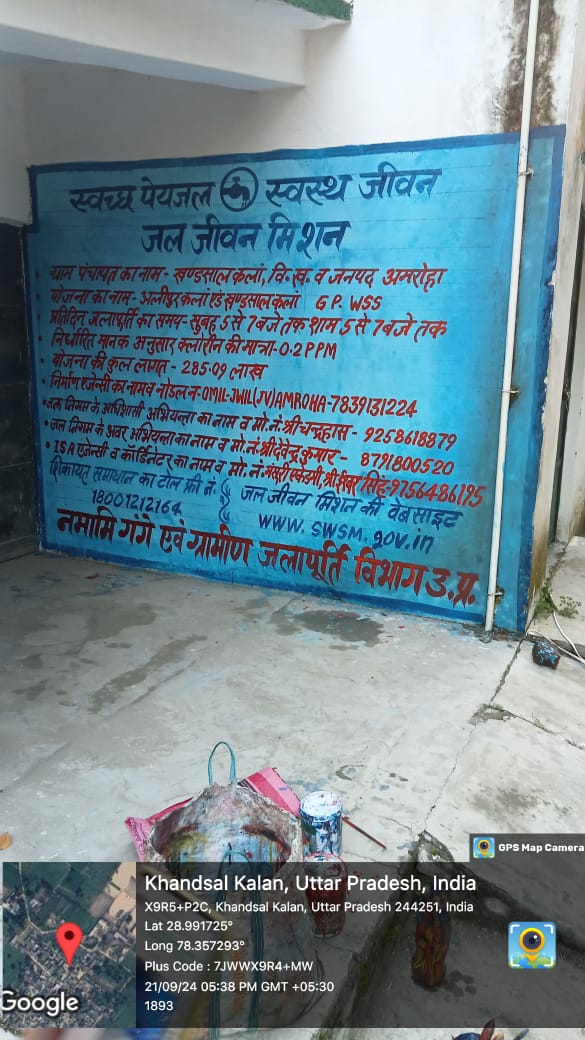 स्वच्छ पेयजल स्वस्थ जीवन
जल जीवन मिशन
ग्राम पंचायत का नाम - खण्डसाल कलां, वि.ख. व जनपद अमरोहा
योजना का नाम - अलीपुर कलां एंड खण्डसाल कलां G P. WSS
प्रतिदिन जलापूर्ति का समय - सुबह 5 से 7 बजे तक शाम 5 से 7 बजे तक
• निर्धारित मानक अनुसार क्लोरीन की मात्रा - 0.2 PPM
• योजना की कुल लागत - 285.09 लाख
• निर्माण एजेन्सी का नाम व नोडल न.- OMIL-JWIL(JV) AMROHA-7839131224
• जल निगम के अधिशासी अभियन्ता का नाम व मो.नं. श्री चन्द्रहास - 9258618879
• जल निगम के अवर अभियन्ता का नाम व मो.नं. श्री देवेन्द्र कुमार - 8791800520
• ISA एजेन्सी व कॉर्डिनेटर का नाम व मो.नं. एकेडमी, श्री ईश्वर सिंह-9756486195
शिकायत समाधान का टोल फ्री नं.
18001212164
जल जीवन मिशन की वेबसाइट
www.swsm.gov.in
नमामि गंगे एवं ग्रामीण जलापूर्ति विभाग उ.प्र.
GPS Map Camera
Khandsal Kalan, Uttar Pradesh, India
X9R5+P2C, Khandsal Kalan, Uttar Pradesh 244251, India
Lat 28.991725°
Long 78.357293°
Plus Code : 7JWWX9R4+MW
21/09/24 05:38 PM GMT +05:30
1893
Google